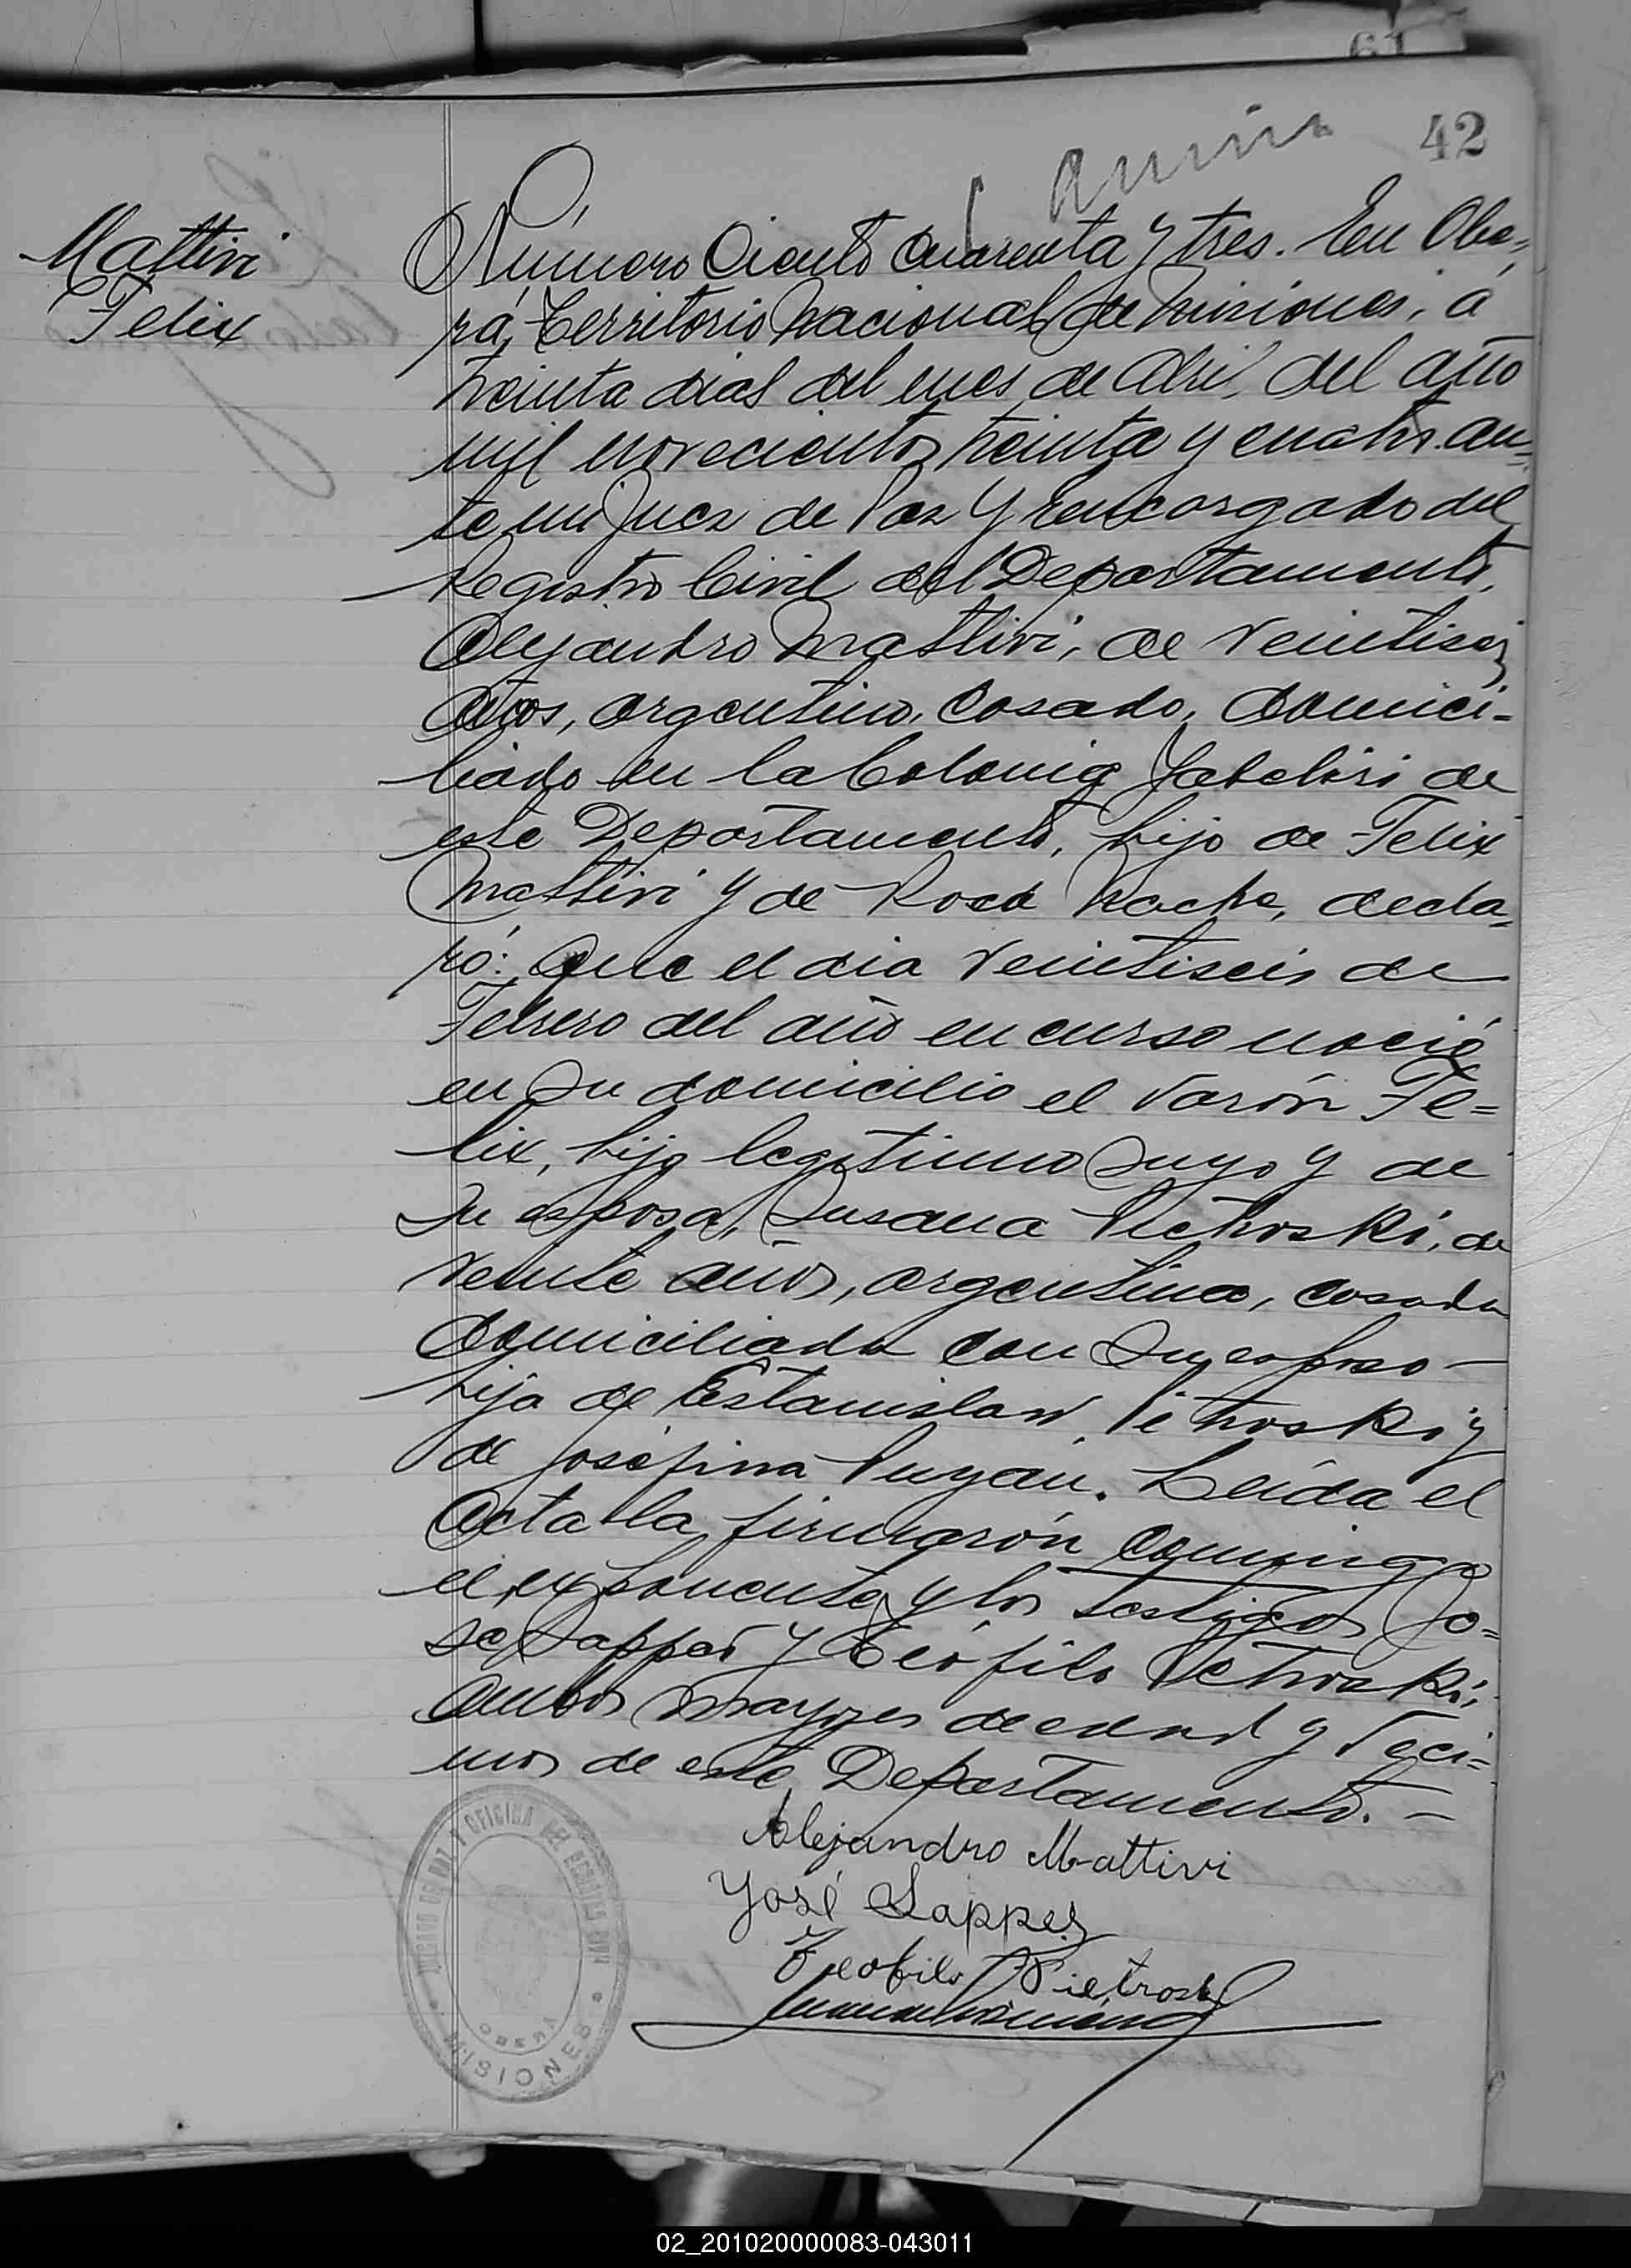 42
Mattivi
Felix
Número Ciento cuarenta y tres. En Obe-
rá, Territorio Nacional de Misiones, á
treinta dias del mes de Abril del año
mil novecientos treinta y cuatro. an-
te mi Juez de Paz y Encargado del
Registro Civil del Departamento,
Alejandro Mattivi, de veintiseis
años, argentino, casado, domici-
liado en la Colonia Yabebiri de
este Departamento, hijo de Felix
Mattivi y de Rosa, decla-
ró: Que el dia veintiseis de
Febrero del año en curso nació
en su domicilio el varón Fe=
lix, hijo legitimo suyo y de
su esposa, Susana Pietroski, de
veinte años, argentina, casada
domiciliada con su esposo-
hija de Estanislao Pietroski y
de Josefina. Leída el
acta la firmarón conmigo
el exponente y los testigos Jo=
sé Sappes y Teófilo Pietroski,
ambos mayores de edad y veci=
nos de este Departamento. -
Alejandro Mattivi
José Sappes
Teofilo Pietroski
JUZGADO DE PAZ Y OFICINA DEL REGISTRO CIVIL
OBERÁ
MISIONES
02_201020000083-043011